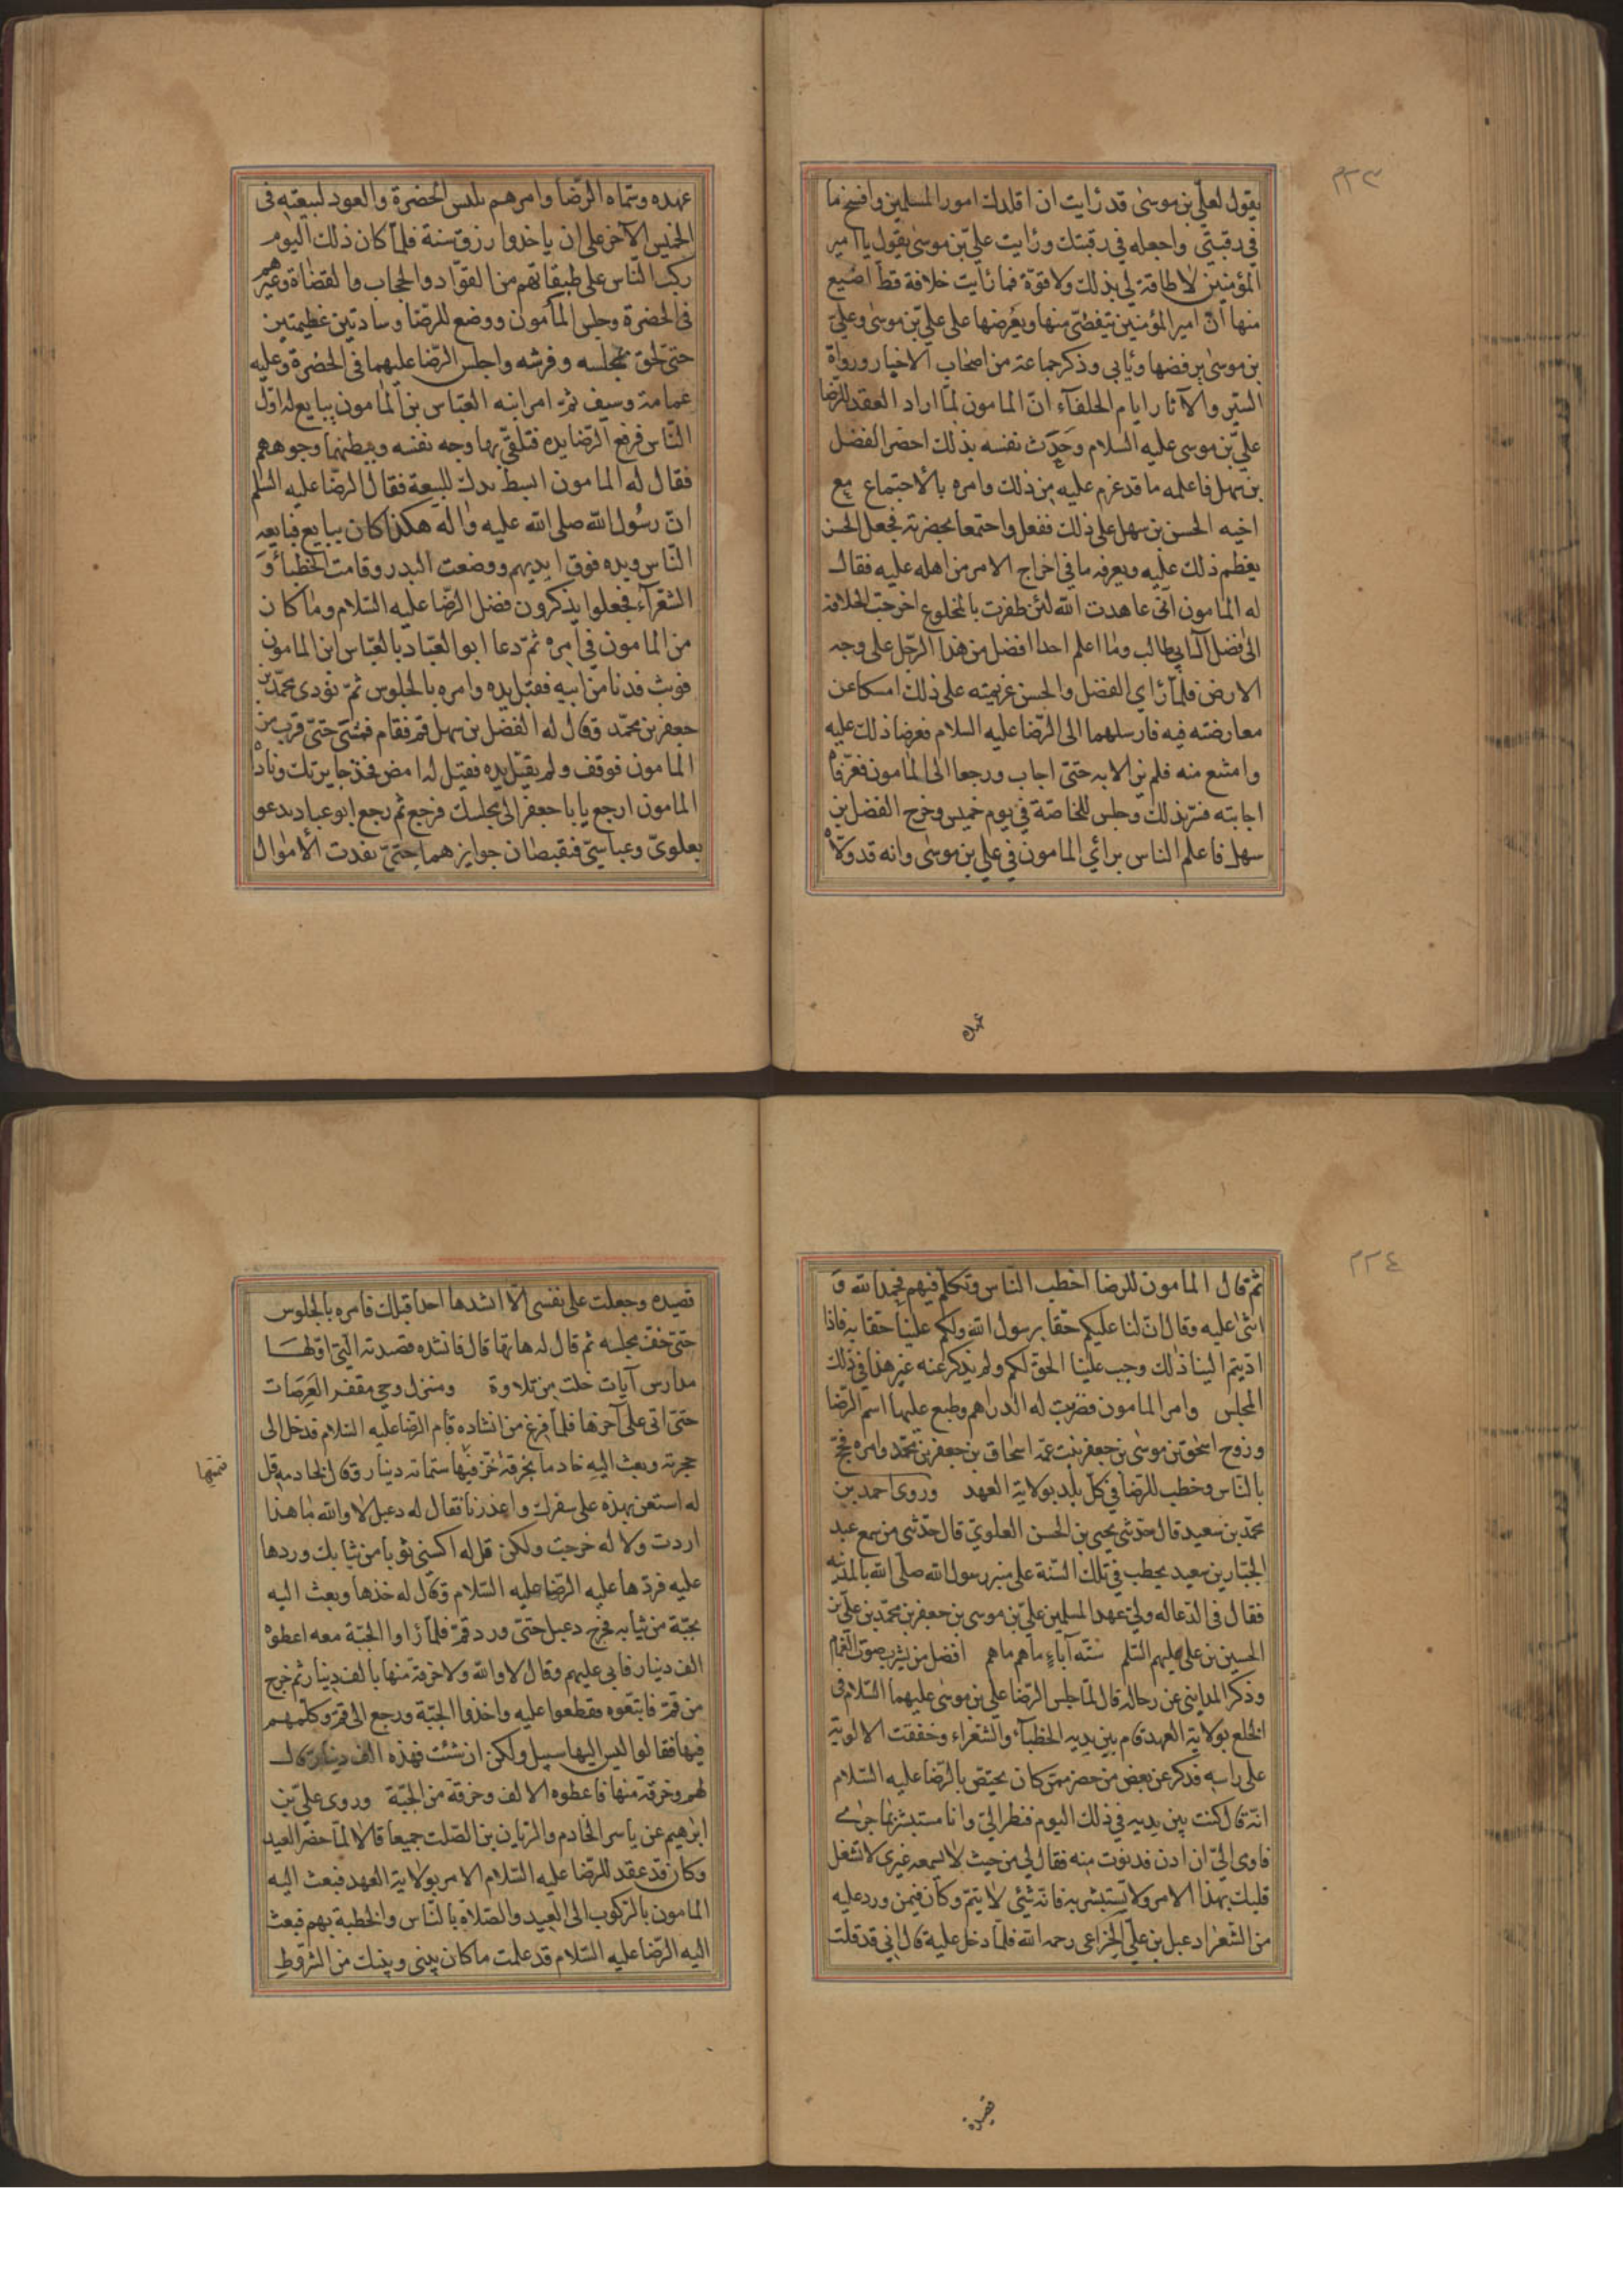 ٢٢٣
يقول لعلي بن موسى قد رايت ان اقلدك امور المسلمين وافسخ ما
في رقبتي واجعله في رقبتك ورايت علي بن موسى يقول يا امير
المؤمنين لا طاقة لي بذلك ولا قوّة فما رايت خلافة قط اضيع
منها انّ امير المؤمنين يتفصّى منها ويعرضها على علي بن موسى وعليّ
بن موسى يرفضها ويأبى وذكر جماعة من اصحاب الاخبار ورواة
السير والآثار ايام الخلفآء انّ المامون لمّا اراد العقد للرّضا
عليّ بن موسى عليه السلام وحدّث نفسه بذلك احضر الفضل
بن سهل فاعلمه ما قد عزم عليه من ذلك وامره بالاجتماع مع
اخيه الحسن بن سهل على ذلك ففعل واجتمعا بحضرته فجعل الحسن
يعظم ذلك عليه ويعرفه ما في اخراج الامر من اهله عليه فقال
له المامون انّي عاهدت الله لئن ظفرت بالمخلوع اخرجت الخلافة
الى افضل آل ابي طالب وما اعلم احدا افضل من هذا الرّجل على وجه
الارض فلمّا رأي الفضل والحسن عزيمته على ذلك امسكا عن
معارضته فيه فارسلهما الى الرّضا عليه السلام فعرضا ذلك عليه
وامتنع منه فلم يزالا به حتىّ اجاب ورجعا الى المامون فعرّفاه
اجابته فسرّ بذلك وجلس للخاصّة في يوم خميس وخرج الفضل بن
سهل فاعلم الناس برائي المامون في علي بن موسى وانه قد ولّاه
عهده
عهده وسمّاه الرّضا وامرهم بلبس الخضرة والعود لبيعته فى
الخميس الآخر على ان ياخذوا رزق سنة فلمّا كان ذلك اليوم
ركب النّاس على طبقاتهم من القوّاد والحجاب والقضاة وغيرهم
في الخضرة وجلس المأمون ووضع للرّضا وسادتين عظيمتين
حتىّ لحق بمجلسه وفرشه واجلس الرّضا عليهما في الخضرة وعليه
عمامة وسيف ثمّ امر ابنه العبّاس بن المامون يبايع له اوّل
النّاس فرفع الرّضا يده فتلقىّ بها وجه نفسه وببطنها وجوههم
فقال له المامون ابسط يدك للبيعة فقال الرّضا عليه السّلم
انّ رسُول الله صلى الله عليه واله هكذا كان يبايع فبايعه
النّاس ويده فوق ايديهم ووضعت البدر وقامت الخطبآء وَ
الشعرآء فجعلوا يذكرون فضل الرّضا عليه السّلام وما كان
من المامون في امره ثمّ دعا ابو العبّاد بالعبّاس ابن المامون
فوثب فدنا من ابيه فقبّل يده وامره بالجلوس ثمّ نودى محمّد بن
جعفر بن محمّد وقال له الفضل بن سهل قم فقام فمشىّ حتىّ قرب من
المامون فوقف ولم يقبّل يده فقيل له امض فخذ جايزتك وناداه
المامون ارجع يابا جعفر الى مجلسك فرجع ثم رجع ابو عباد يدعو
بعلويّ وعباسيّ فيقبضان جوايزهما حتىّ نفدت الأموال
٢٢٤
ثم قال المامون للرضا اخطب النّاس وتكلم فيهم فحمد الله وَ
اثنى عليه وقال انّ لنا عليكم حقّا برسول الله ولكم علينا حقا به فاذا
ادّيتم الينا ذلك وجب علينا الحق لكم ولم يذكر عنه غير هذا في ذلك
المجلس وامر المامون فضربت له الدراهم وطبع عليها اسم الرّضا
وزوج اسحق بن موسى بن جعفر بنت عمّه اسحاق بن جعفر بن محمّد وامره فحجّ
بالنّاس وخطب للرّضا في كلّ بلد بولاية العهد وروى احمد بن
محمّد بن سعيد قال حدّثني يحيى بن الحسن العلويّ قال حدّثني من سمع عبد
الجبّار بن سعيد يخطب في تلك السّنة على منبر رسول الله صلّى الله بالمدينة
فقال فى الدّعا له وليّ عهد المسلمين عليّ بن موسى بن جعفر بن محمّد بن عليّ بن
الحسين بن على عليهم السّلم ستّة آباءٍ ما هم ما هم افضل من يشرب صوب الغمام
وذكر المدايني عن رجاله قال لمّا جلس الرّضا علي بن موسى عليهما السّلام فى
الخلع بولاية العهد قام بين يديه الخطبآء والشعراء وخفقت الالوية
على راسه فذكر عن بعض من حضر ممّن كان يختصّ بالرّضا عليه السّلام
انّه قال كنت بين يديه في ذلك اليوم فنظر اليّ وانا مستبشر بما جرى
فاومى اليّ ان ادن فدنوت منه فقال لي من حيث لا يسمعه غيري لا تشغل
قلبك بهذا الامر ولا تستبشر به فانّه شيئ لا يتمّ وكان فيمن ورد عليه
من الشّعرا دعبل بن عليّ الخزاعى رحمه الله فلمّا دخل عليه قال انى قد قلت
قصيدة
قصيده وجعلت على نفسى الّا انشدها احدا قبلك فامره بالجلوس
حتىّ خفّ مجلسه ثم قال له هاتها قال فانشده قصيدته التي اوّلهـا
مدارس آيات خلت من تلاوة ومنزل وحي مقفر العَرصَات
حتىّ اتى على آخرها فلمّا فرغ من انشاده قام الرّضا عليه السّلام فدخل الى
حجرته وبعث اليه خادما بخرقة خزّ فيها ستمائه دينار وقال لخادمه قل
له استعن بهذه على سفرك واعذرنا فقال له دعبل لا والله ما هذا
اردت ولا له خرجت ولكن قل له اكسني ثوبا من ثيابك وردها
عليه فردّها عليه الرّضا عليه السّلام وقال له خذها وبعث اليه
بجبّة من ثيابه فخرج دعبل حتىّ ورد قمّ فلمّا رٲوا الجبّة معه اعطوه
الف دينار فابى عليهم وقال لا والله ولا خرقة منها بالف دينار ثم خرج
من قمّ فاتبّعوه فقطعوا عليه واخذوا الجبّة ورجع الى قمّ وكلّمهم
فيها فقالوا ليس اليها سبيل ولكن ان شئت فهذه الف دينار قال
لهم وخرقة منها فاعطوه الالف وخرقة من الجبّة وروى علىّ بن
ابرٰهيم عن ياسر الخادم والرّيان بن الصّلت جميعا قالا لمّا حضر العيد
وكان قد عقد للرّضا عليه السّلام الامر بولاية العهد فبعث اليه
المامون بالرّكوب الى العيد والصّلاة بالنّاس والخطبة بهم فبعث
اليه الرّضا عليه السّلام قد علمت ما كان بيني وبينك من الشّروط